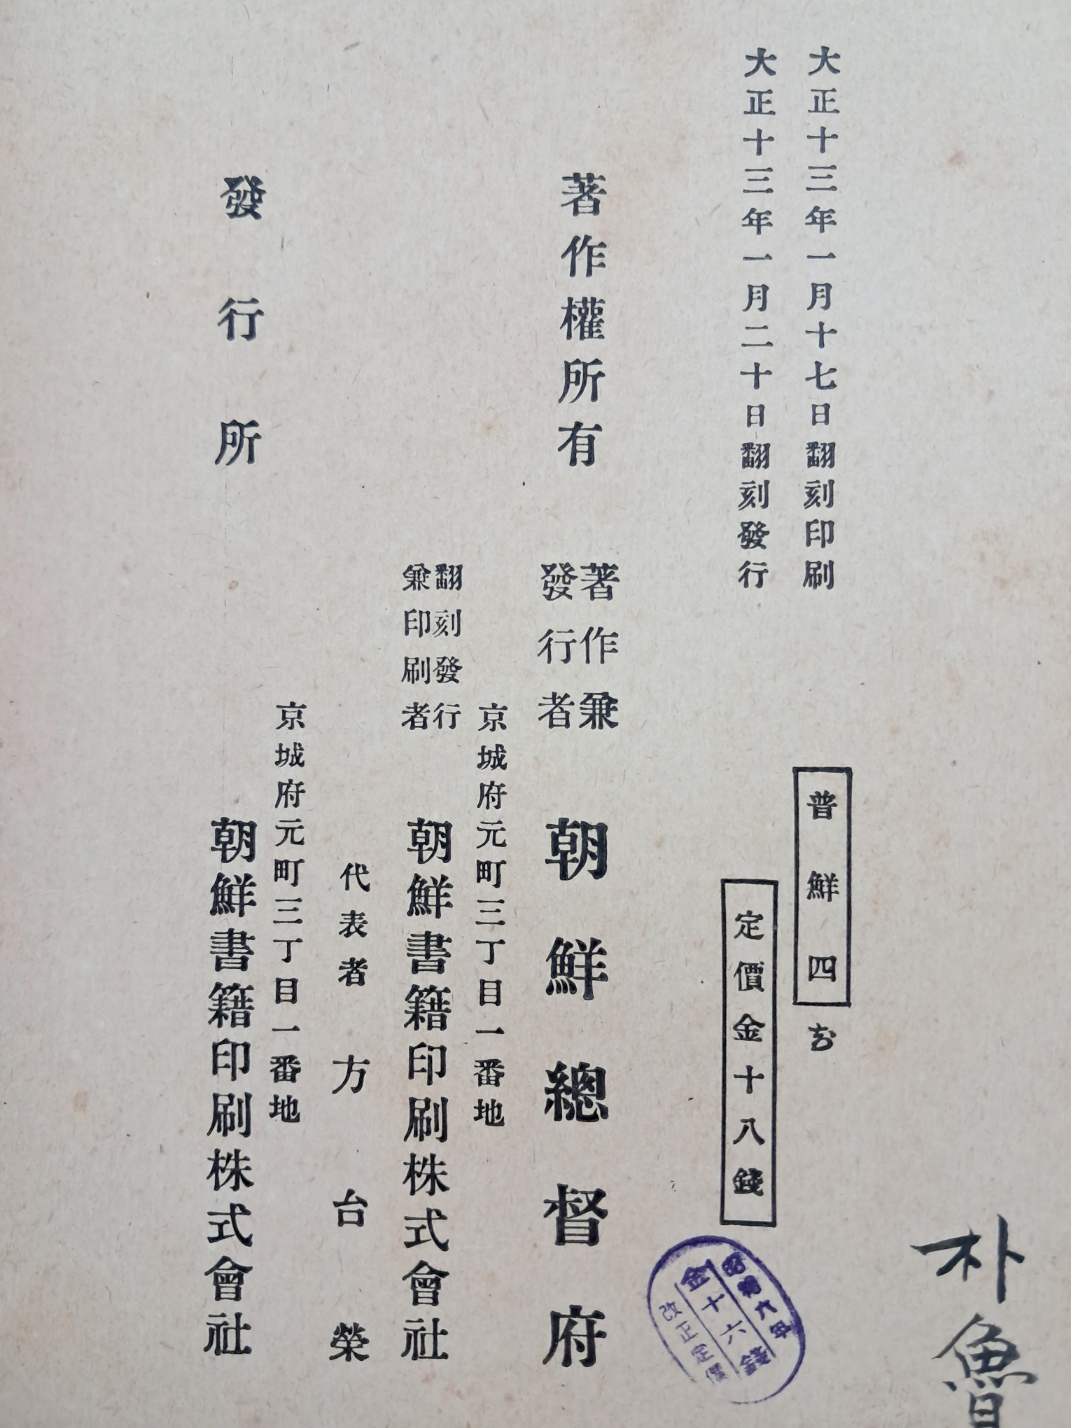 大正十三年一月十七日翻刻印刷
大正十三年一月二十日翻刻發行
普鮮四
定價金十八錢
昭和六年
金十六錢
改正定價
著作權所有
著作兼
發行者
朝鮮總督府
京城府元町三丁目一番地
翻刻發行
兼印刷者
朝鮮書籍印刷株式會社
代表者 方台榮
發行所
京城府元町三丁目一番地
朝鮮書籍印刷株式會社
朴魯